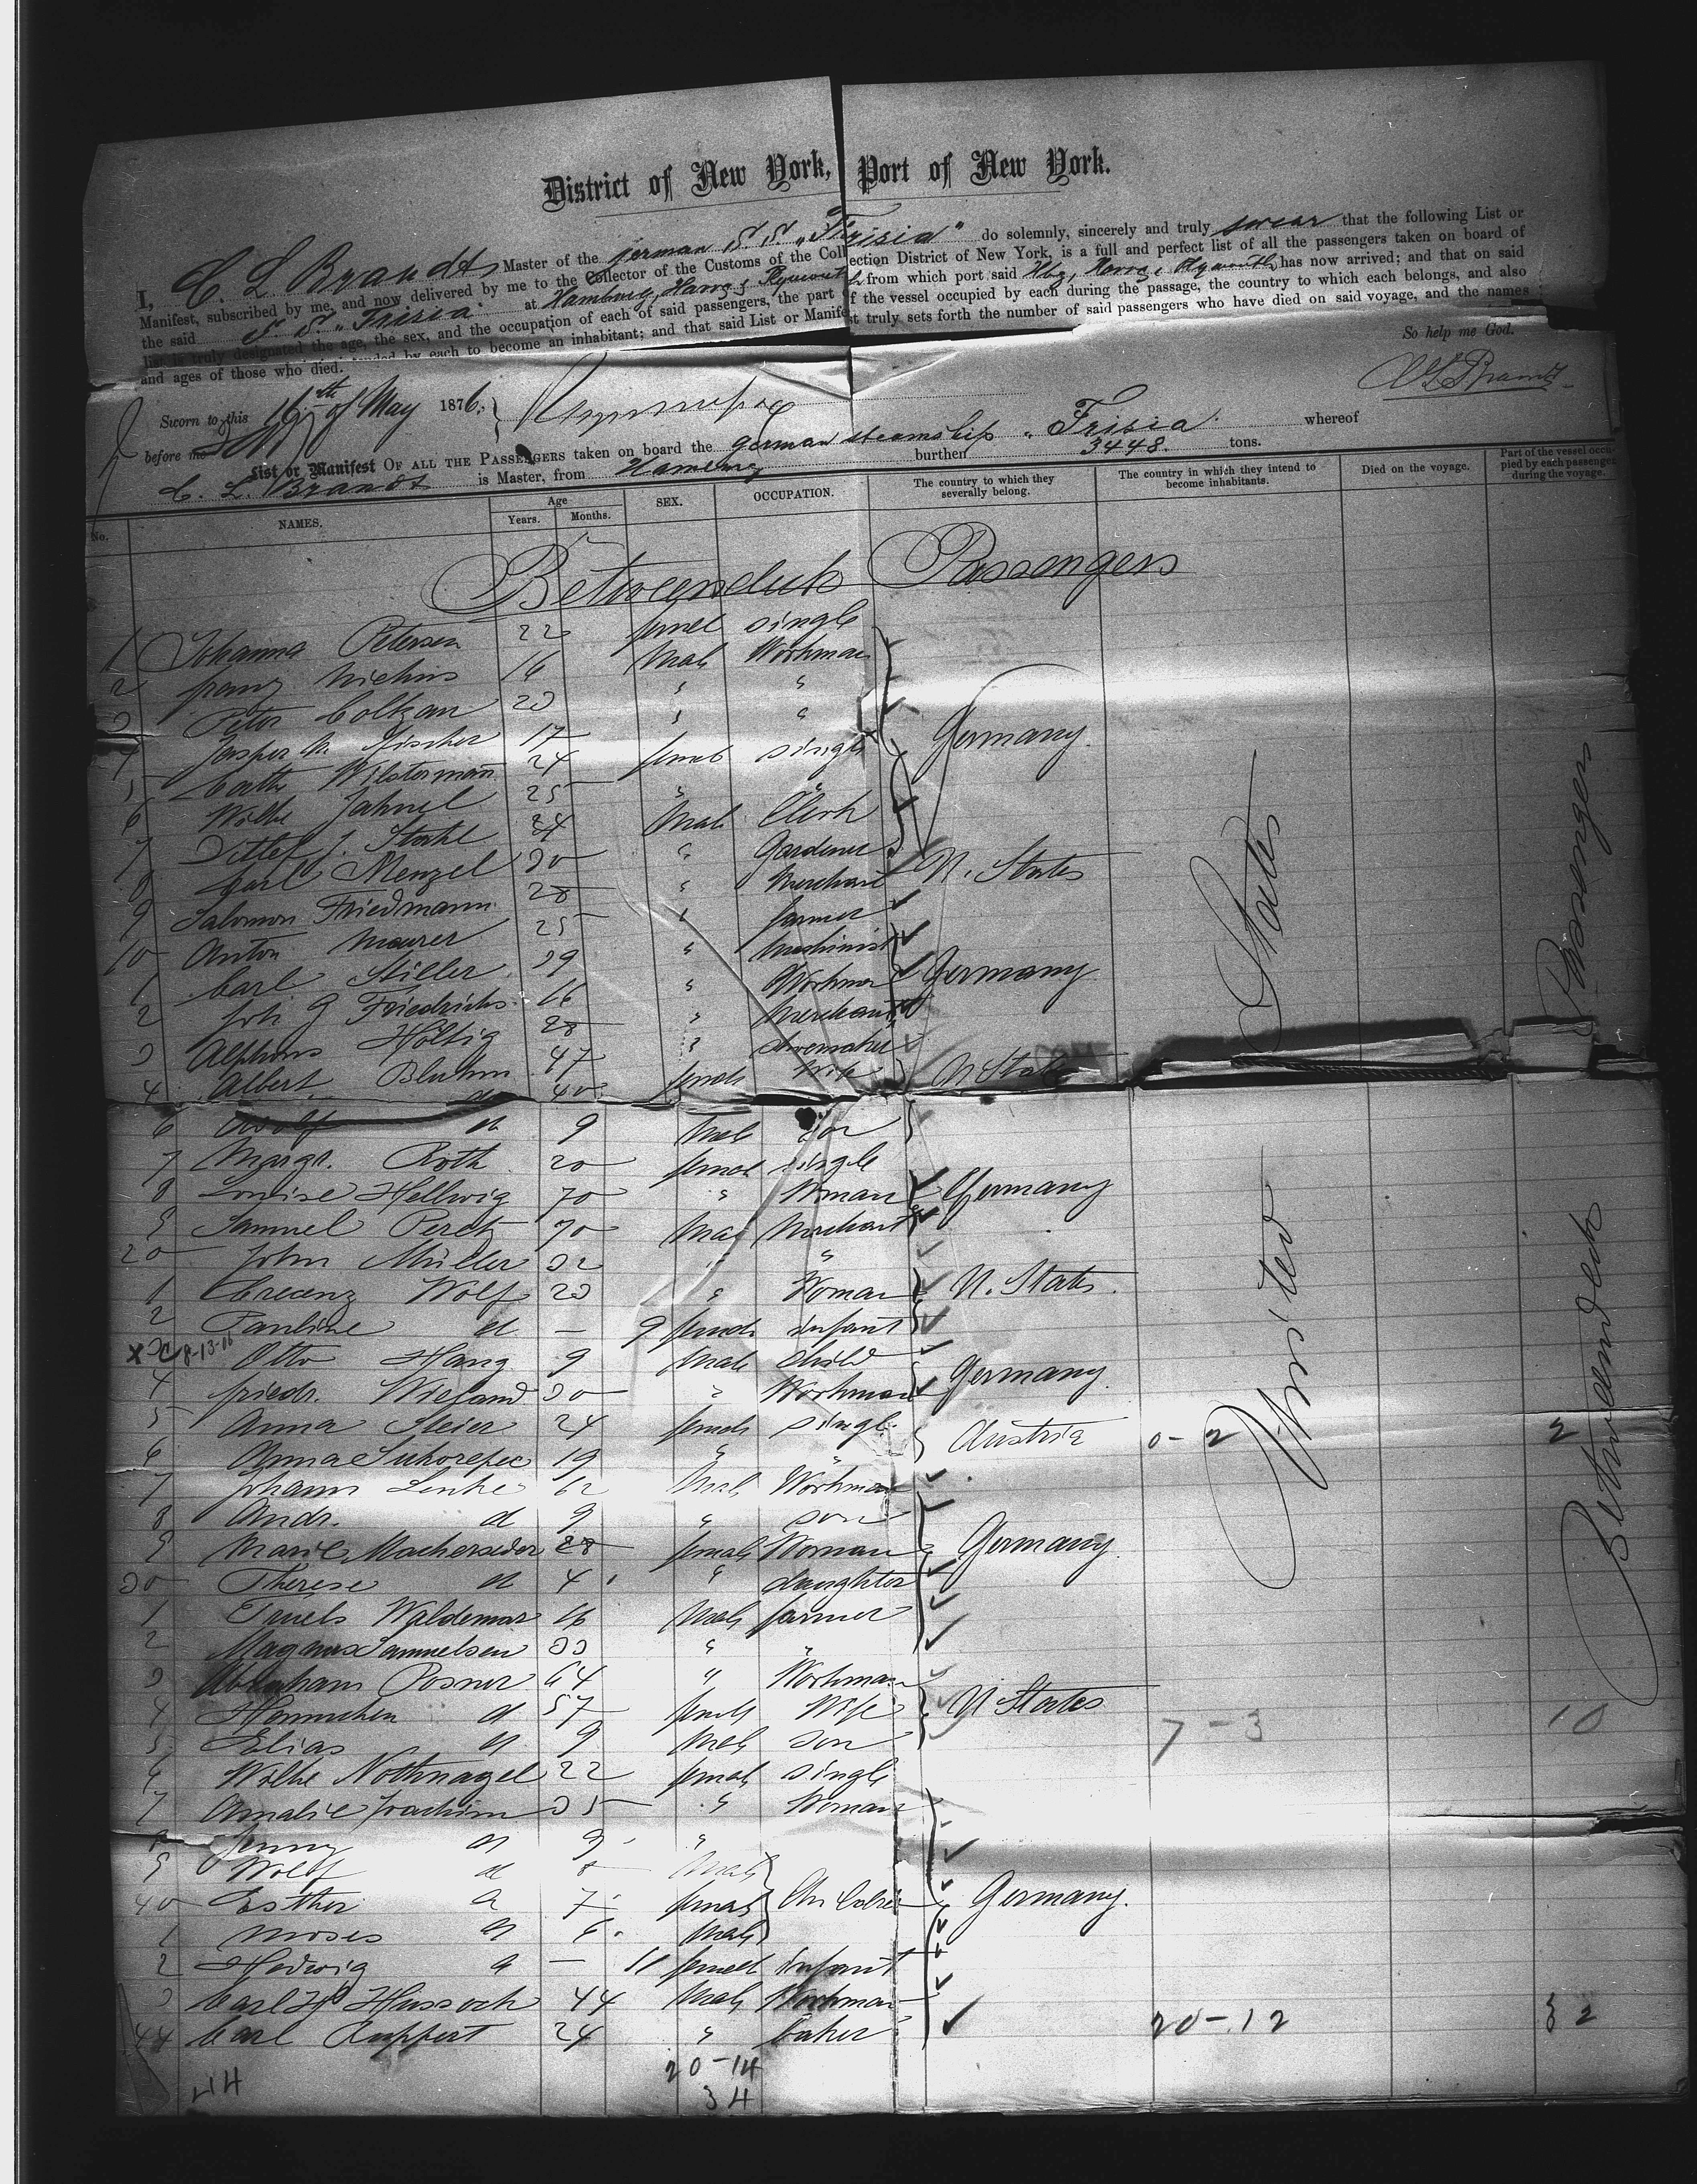 District of New York, Port of New York.
I, C. L. Brandt Master of the german S. S. "Frisia" do solemnly, sincerely and truly swear that the following List or
Manifest, subscribed by me, and now delivered by me to the Collector of the Customs of the Collection District of New York, is a full and perfect list of all the passengers taken on board of
the said S. S. "Frisia" at Hamburg, Havre & Plymouth from which port said Hbg, Havre & Plymouth has now arrived; and that on said
list is truly designated the age, the sex, and the occupation of each of said passengers, the part of the vessel occupied by each during the passage, the country to which each belongs, and also
intended by each to become an inhabitant; and that said List or Manifest truly sets forth the number of said passengers who have died on said voyage, and the names
and ages of those who died.
So help me God.
Sworn to this 16th of May 1876,
C L Brandt
before me
List or Manifest OF ALL THE PASSENGERS taken on board the german steamship "Frisia" whereof
C. L. Brandt is Master, from Hamburg burthen 3448. tons.
No. NAMES. Age Years. Months. SEX. OCCUPATION. The country to which they severally belong. The country in which they intend to become inhabitants. Died on the voyage. Part of the vessel occupied by each passenger during the voyage.
Betweendeck Passengers
1 Johanna Petersen 22 femel single
2 franz 16 Male Workman
3 Peter 23 " "
4 Jasper M. Fischer 17 " "
Germany
5 Cath Wilstermann 24 femal single
6 Wilhe Jahnel 25 " "
7 Ditlef J. Stahl 34 Male Clerk
8 Carl Menzel 30 " Gardener
U. States
9 Salomon Friedmann 28 " Merchant
10 Anton Maurer 25 " farmer
1 Carl Stiller 39 " Mashinist
Germany
2 Joh G Friedrichs 16 " Workman
3 Alphons Höltig 28 " Merchant
4 Albert Bluhm 47 " shoemaker
d 40 female Wife
U States
6 Adolf d 9 Male son
7 Margr. Roth 20 femal single
8 Louise Hellwig 70 " Woman
Germany
9 Samuel Peretz 70 Mal Merchant
20 John Müller 32 "
1 Crecenz Wolf 23 " Woman
U. States
2 Pauline d — 9 femal infant
X 3 C 8-13-06 Otto Haug 9 Male Child
Germany
4 friedr. Wieland 30 " Workman
5 Anna Meier 24 female single
Austria 0-2 2
6 Anna Suhorepec 19 " "
7 Johann Linke 62 Male Workman
8 Andr. d 9 " son
9 Marie Macherseder 28 female Woman
Germany
30 Therese d 4 " daughter
1 Truels Waldemar 16 Male farmer
2 Magnus Samuelsen 33 " "
3 Abraham Posner 64 " Workman
4 Hannchen d 57 female Wife
U States 7-3 10
5 Elias d 9 Male son
6 Wilhe Nothnagel 22 female single
7 Amalie Joachim 35 " Woman
8 Jenny d 9 "
9 Wolf d 8 Male
40 Esther d 7 female
Germany.
1 Moses d 6 Male
2 Hedwig d — 11 female infant
3 Carl Hussock 44 Male Workman
44 Carl Ruppert 24 " baker
20-12 32
20-14
34
44
United States
Betweendeck Passengers